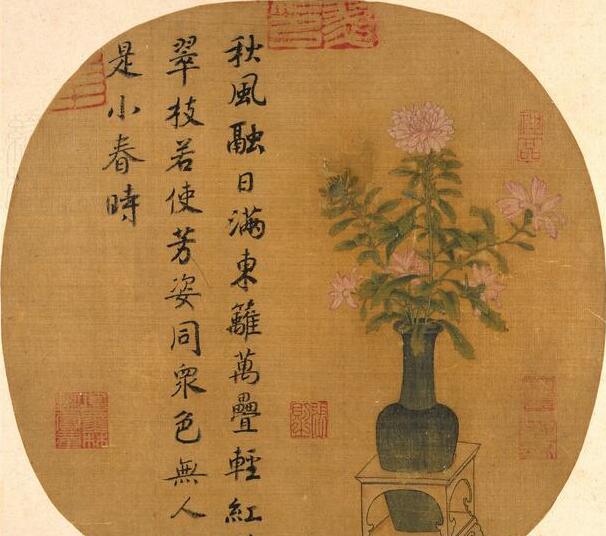 秋風融日滿東籬萬疊輕紅
翠枝若使芳姿同衆色無人
是小春時